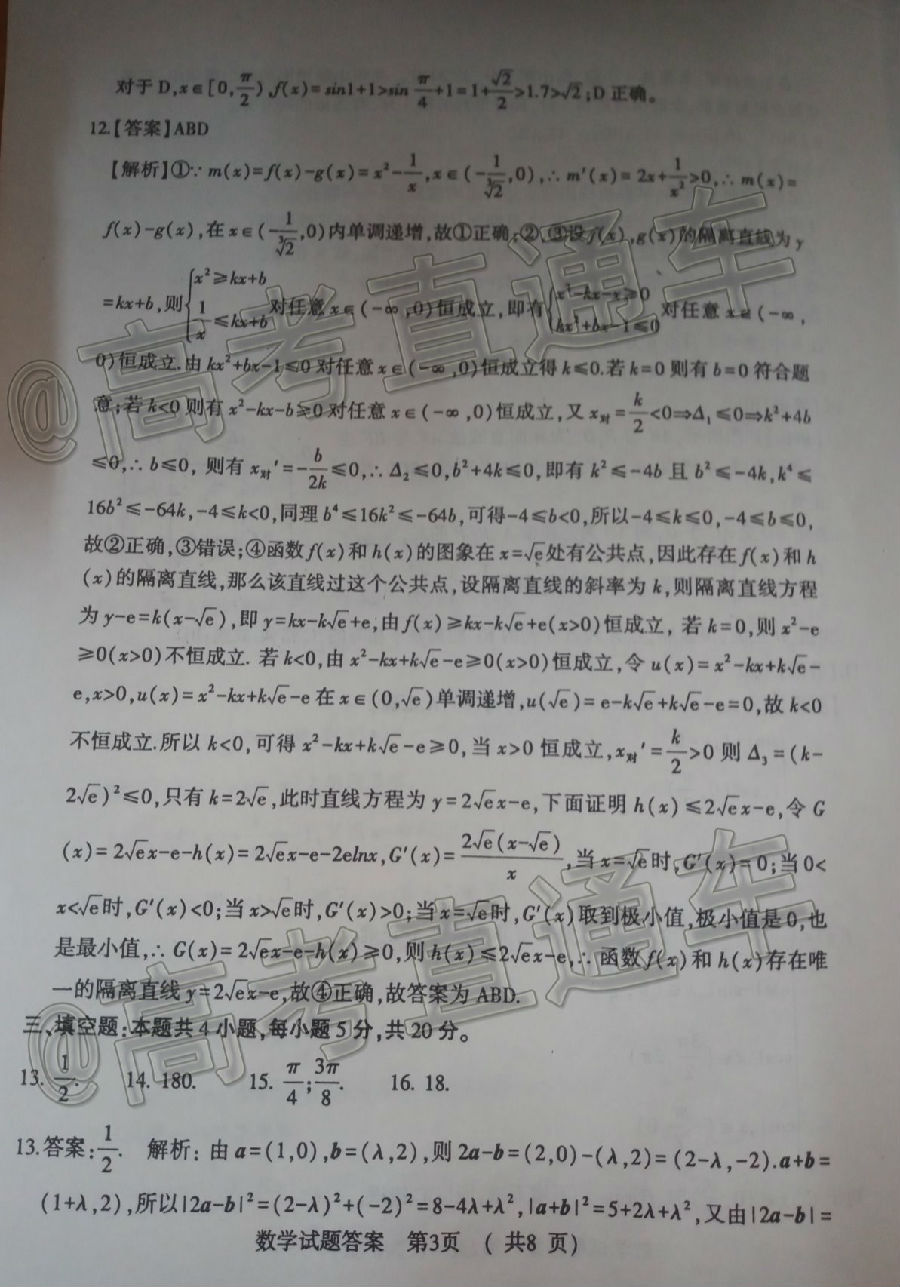 对于 D,x∈[0,π/2),f(x)=sin1+1>sin π/4+1=1+√2/2>1.7>√2;D 正确。
12.【答案】ABD
【解析】①∵ m(x)=f(x)-g(x)=x²-1/x,x∈(-1/∛2,0),∴ m′(x)=2x+1/x²>0,∴ m(x)=
f(x)-g(x),在 x∈(-1/∛2,0)内单调递增,故①正确;②、③设f(x),g(x)的隔离直线为 y
=kx+b,则{x²≥kx+b 1/x≤kx+b 对任意 x∈(-∞,0)恒成立,即有{x²-kx-x≥0 kx²+bx-1≤0 对任意 x∈(-∞,
0)恒成立.由 kx²+bx-1≤0 对任意 x∈(-∞,0)恒成立得 k≤0.若 k=0 则有 b=0 符合题
意;若 k<0 则有 x²-kx-b≥0 对任意 x∈(-∞,0)恒成立,又 x对=k/2<0⇒Δ₁≤0⇒k²+4b
≤0,∴ b≤0, 则有 x对′=-b/2k≤0,∴ Δ₂≤0,b²+4k≤0,即有 k²≤-4b 且 b²≤-4k,k⁴≤
16b²≤-64k,-4≤k<0,同理 b⁴≤16k²≤-64b,可得-4≤b<0,所以-4≤k≤0,-4≤b≤0,
故②正确,③错误;④函数 f(x)和 h(x)的图象在 x=√e处有公共点,因此存在 f(x)和 h
(x)的隔离直线,那么该直线过这个公共点,设隔离直线的斜率为 k,则隔离直线方程
为 y-e=k(x-√e),即 y=kx-k√e+e,由 f(x)≥kx-k√e+e(x>0)恒成立, 若 k=0,则 x²-e
≥0(x>0)不恒成立. 若 k<0,由 x²-kx+k√e-e≥0(x>0)恒成立,令 u(x)=x²-kx+k√e-
e,x>0,u(x)=x²-kx+k√e-e 在 x∈(0,√e)单调递增,u(√e)=e-k√e+k√e-e=0,故 k<0
不恒成立.所以 k<0,可得 x²-kx+k√e-e≥0,当 x>0 恒成立,x对′=k/2>0 则 Δ₃=(k-
2√e)²≤0,只有 k=2√e,此时直线方程为 y=2√ex-e,下面证明 h(x)≤2√ex-e,令 G
(x)=2√ex-e-h(x)=2√ex-e-2elnx,G′(x)=2√e(x-√e)/x,当 x=√e时,G′(x)=0;当 0<
x<√e时,G′(x)<0;当 x>√e时,G′(x)>0;当 x=√e时,G′(x)取到极小值,极小值是 0,也
是最小值,∴ G(x)=2√ex-e-h(x)≥0,则 h(x)≤2√ex-e,∴ 函数 f(x)和 h(x)存在唯
一的隔离直线 y=2√ex-e,故④正确,故答案为 ABD.
三、填空题:本题共 4 小题,每小题 5 分,共 20 分。
13. 1/2. 14. 180. 15. π/4;3π/8. 16. 18.
13.答案:1/2. 解析: 由 a=(1,0),b=(λ,2),则 2a-b=(2,0)-(λ,2)=(2-λ,-2).a+b=
(1+λ,2),所以|2a-b|²=(2-λ)²+(-2)²=8-4λ+λ²,|a+b|²=5+2λ+λ²,又由|2a-b|=
数学试题答案 第3页 ( 共8 页)
@高考直通车
@高考直通车